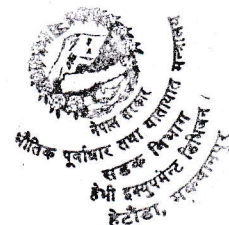 नेपाल सरकार
भौतिक पूर्वाधार तथा यातायात मन्त्रालय
सडक विभाग
हेभी इक्युपमेन्ट डिभिजन
हेटौंडा, मकवानपुर